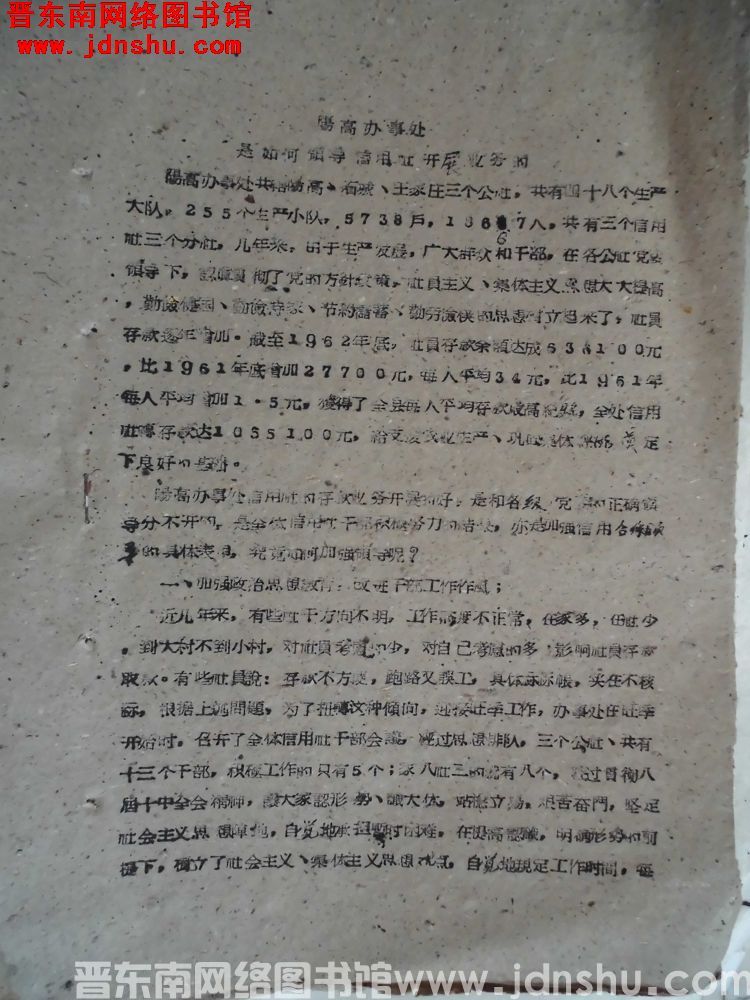 晋东南网络图书馆
www.jdnshu.com
陽高办事处
是如何領导信用社开展业务的
陽高办事处共轄陽高、石城、王家庄三个公社，共有四十八个生产
大队，255个生产小队，5738戶，18667人。共有三个信用
社三个分社，几年来，由于生产发展，广大群众和干部，在各公社党委
領导下，認眞貫彻了党的方針政策，社員主义、集体主义思想大大提高
，勤儉建国、勤儉持家、节約儲蓄、勤劳儉朴的思想树立起来了，社員
存款逐年增加。截至1962年底，社員存款余額达成638100元
，比1961年底增加27700元，每人平均34元，比1961年
每人平均增加1·5元，獲得了全县每人平均存款最高紀錄，全处信用
社存款达1055100元，給支援农业生产、巩固集体經济奠定
下良好的基础。
陽高办事处信用社的存款业务开展的好，是和各級党的正确領
导分不开的，是全体信用社干部积极努力的結果，亦是加强信用合作領
导的具体表現，究竟如何加强領导呢？
一、加强政治思想教育，改进干部工作作風；
近几年来，有些社干方向不明，工作态度不正常，在家多，在社少
，到大村不到小村，对社員考慮的少，对自己考慮的多，影响社員存款
取款。有些社員說：存款不方便，跑路又誤工，具体赤赤帳，实在不核
标，根据上述問題，为了扭轉这种傾向，迎接旺季工作，办事处在旺季
开始时，召开了全体信用社干部会議，經过思想排队，三个公社、共有
十三个干部，积极工作的只有5个；家八社三的就有八个，通过貫彻八
届十中全会精神，讓大家認形势、識大体，站穩立場，艰苦奋鬥，坚定
社会主义思想陣地，自覚地承担暫时困难，在提高認識，明确形势的前
提下，樹立了社会主义、集体主义思想观点，自覚地規定工作时間，每
晋东南网络图书馆www.jdnshu.com